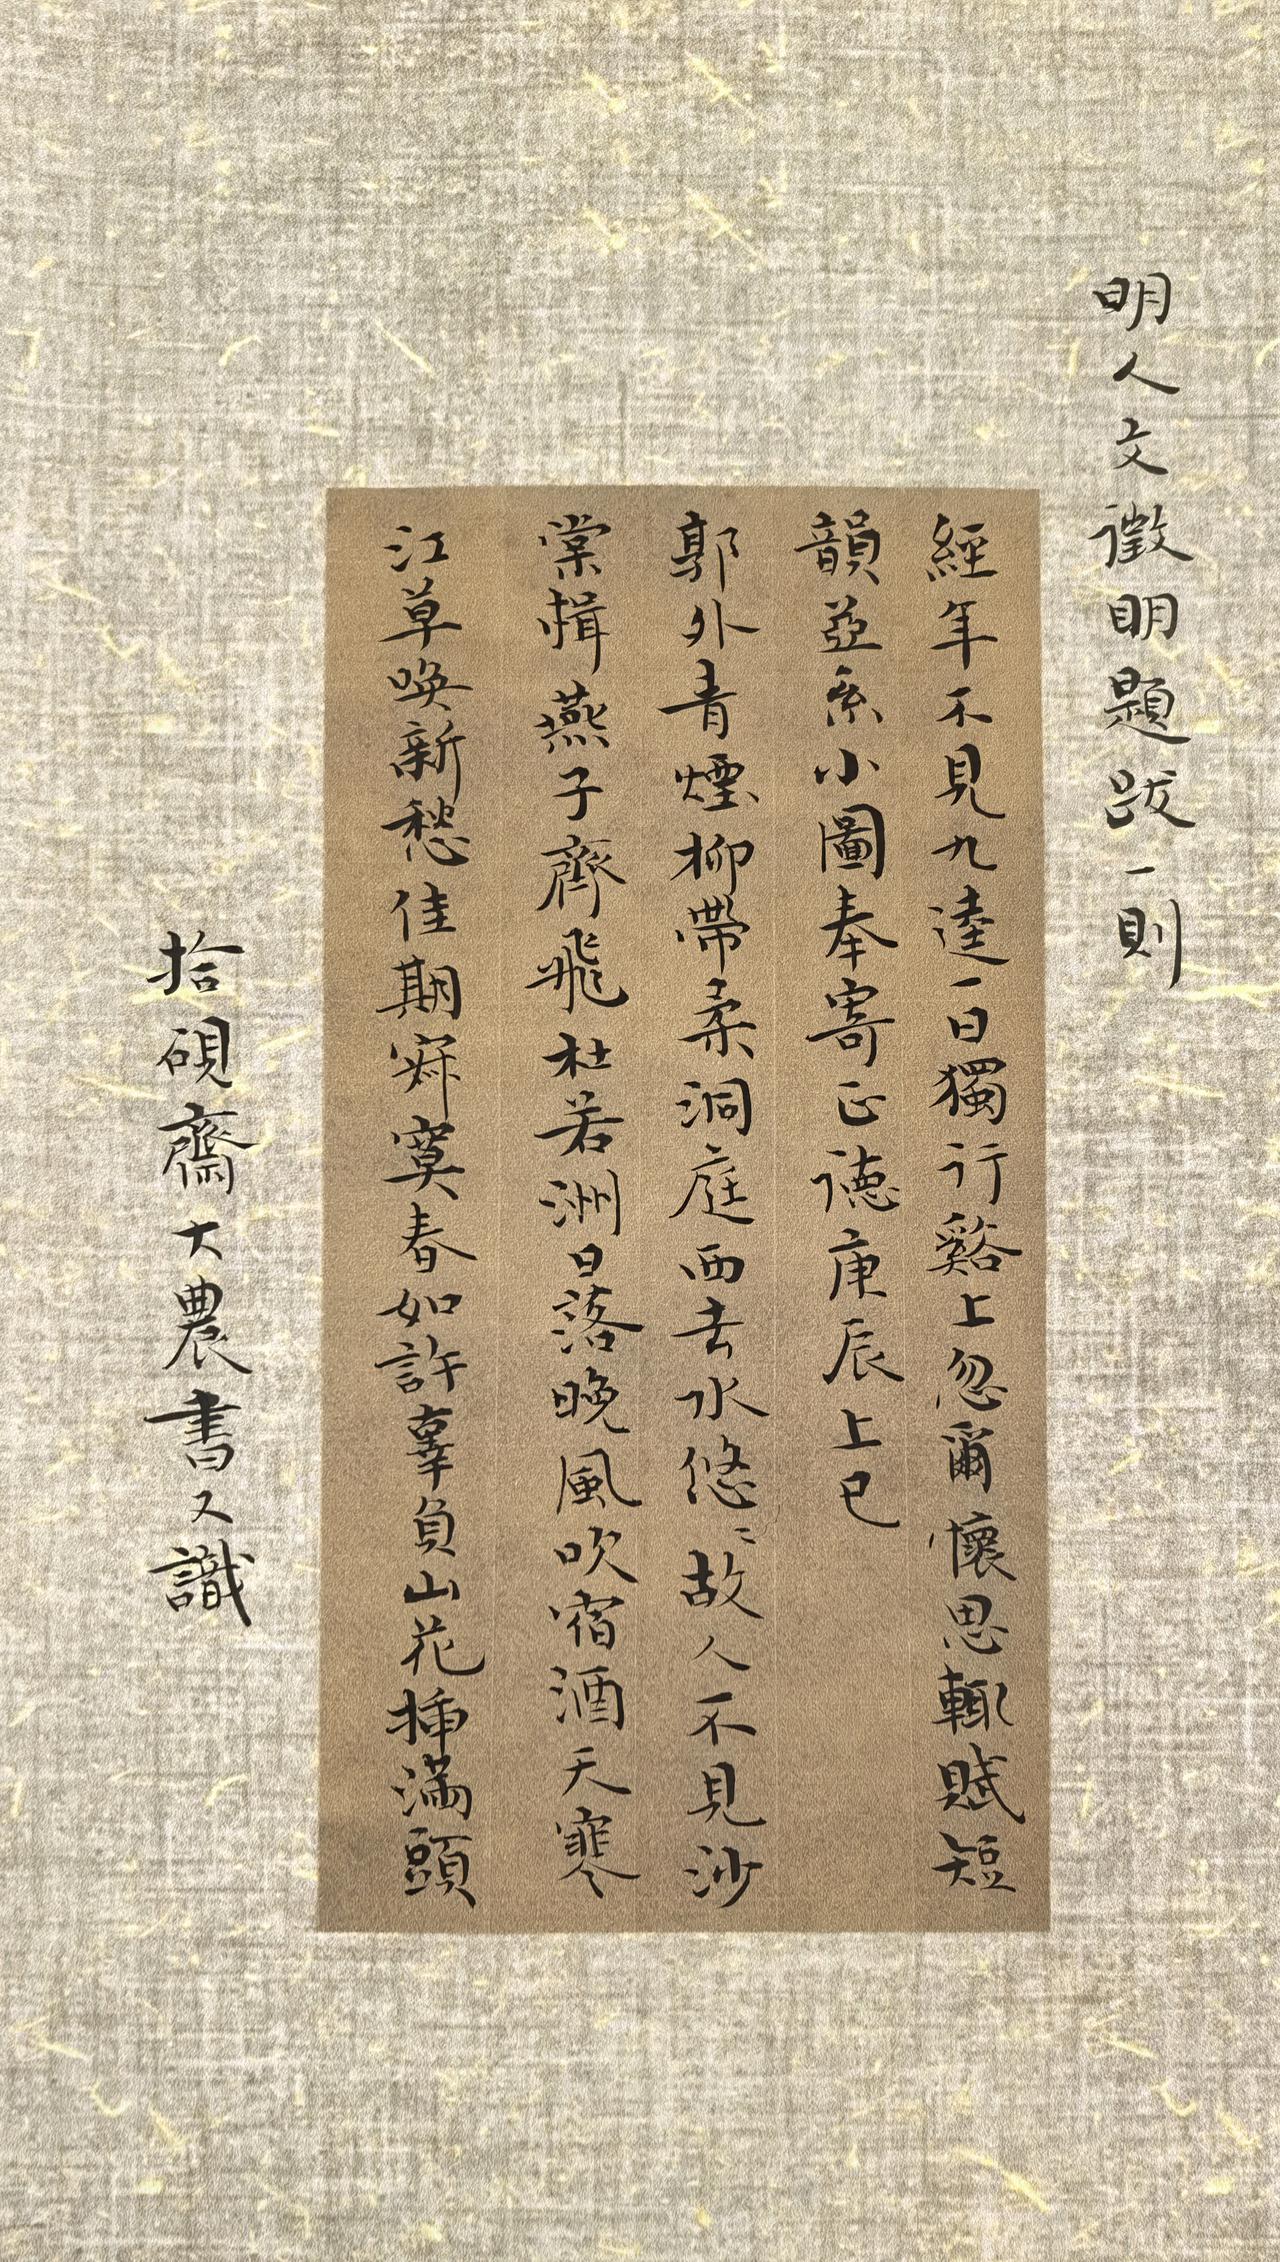 明人文徵明題跋一則
經年不見九逵一日獨行谿上忽爾懷思輒賦短
韻並系小圖奉寄正德庚辰上巳
郭外青煙柳帶柔洞庭西去水悠〻故人不見沙
棠楫燕子齊飛杜若洲日落晚風吹宿酒天寒
江草喚新愁佳期寂寞春如許辜負山花插滿頭
拾硯齋大農書又識